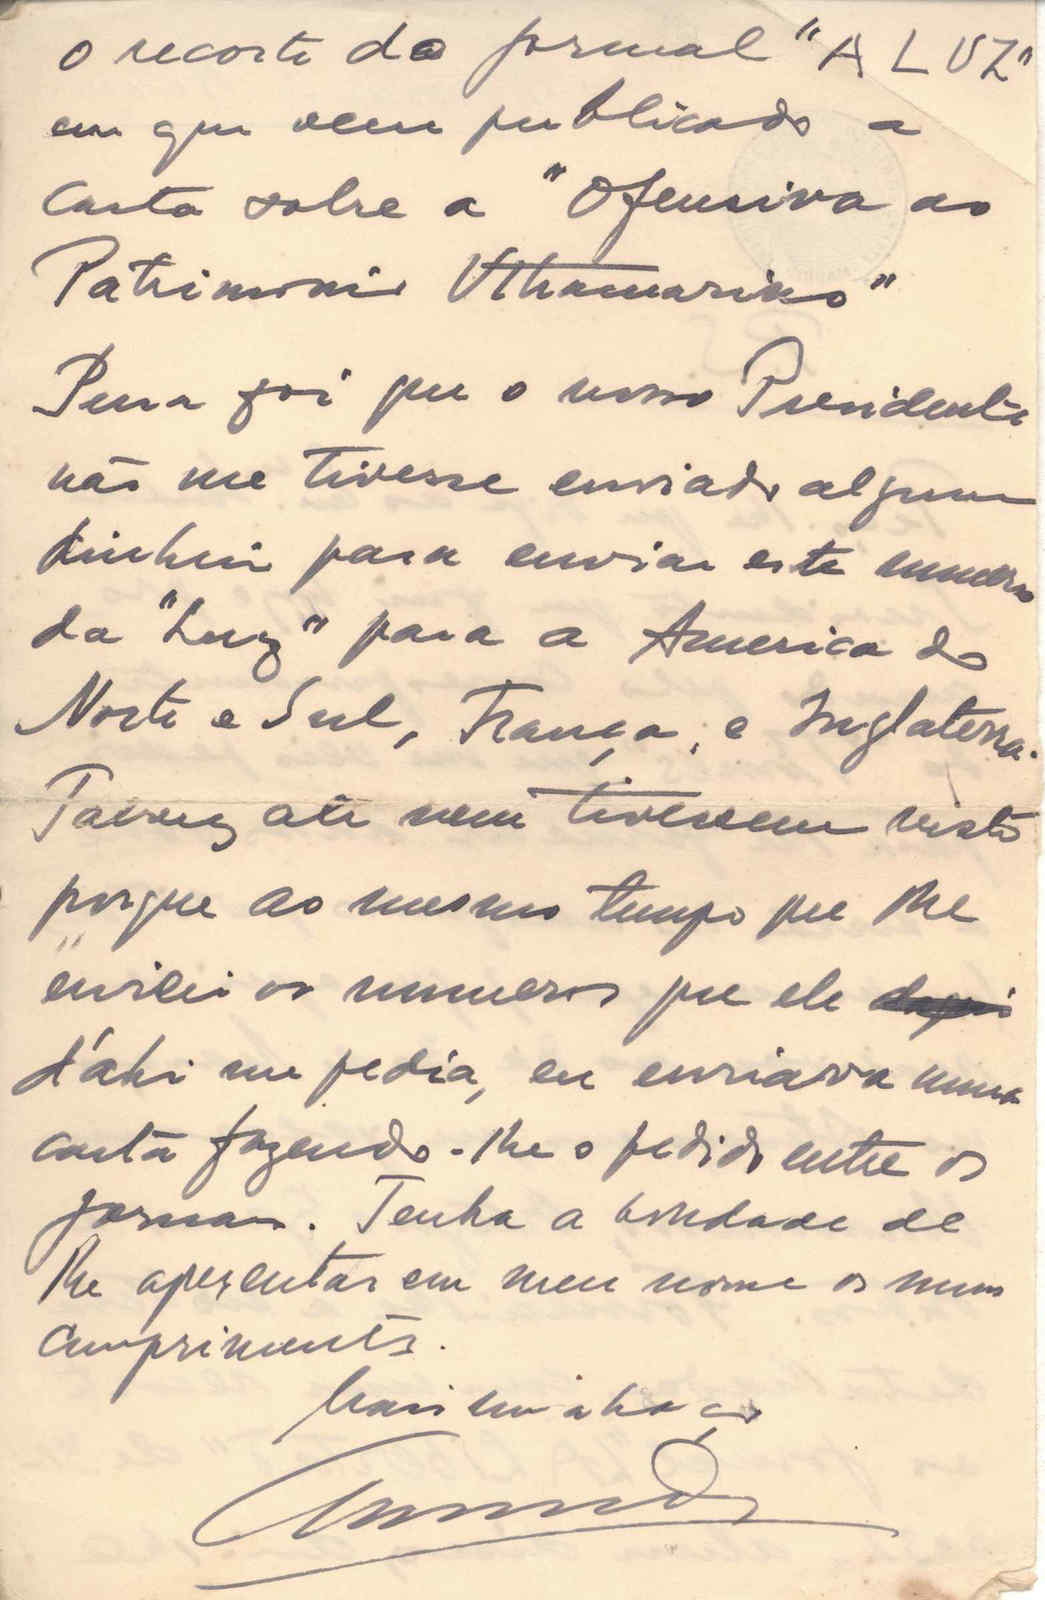 o recorte do jornal "A LUZ"
em que vem publicado a
carta sobre a "Ofensiva ao
Patrimonio Ultramarino"
Pena foi que o nosso Presidente
não me tivesse enviado algum
dinheiro para enviar este numero
da "Luz" para a America do
Norte e Sul, França, e Inglaterra.
Talvez até nem tivessem visto
porque ao mesmo tempo que lhe
enviei os numeros que ele
d'ahi me pedia, eu enviava uma
carta fazendo-lhe o pedido entre os
jornaes. Tenha a bondade de
lhe apresentar em meu nome os meus
cumprimentos.
Mais um abraço